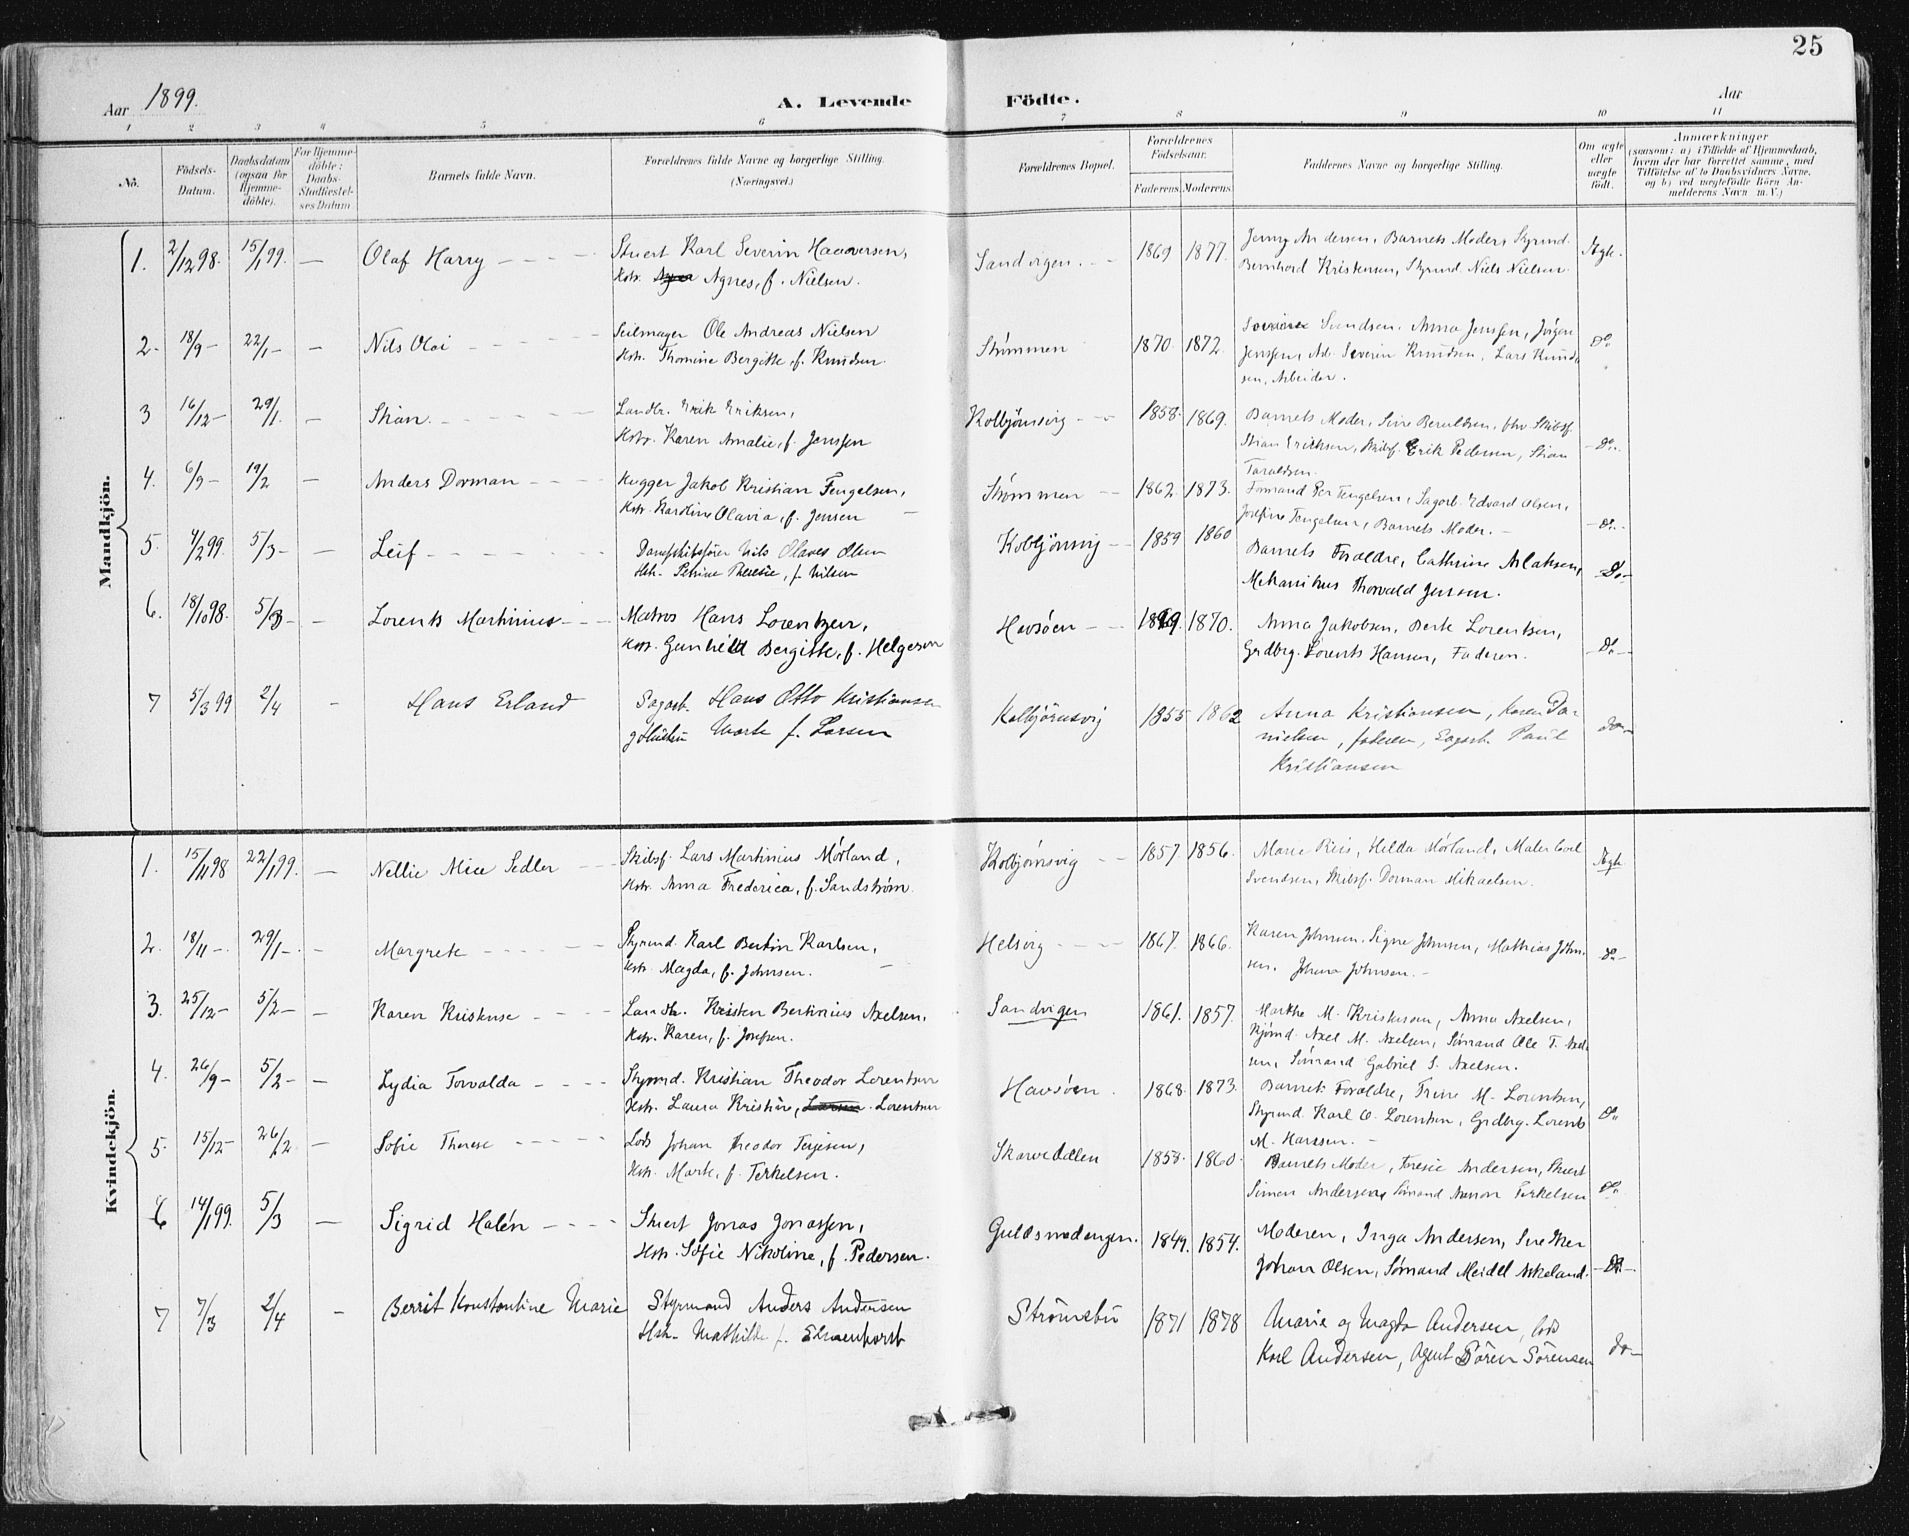 25
Aar 1899.
A. Levende Födte.
Aar
1 2 3 4 5 6 7 8 9 10 11
No.
Födsels-Datum.
Daabsdatum (ogsaa for Hjemme-döbte).
For Hjemme-döbte: Daabs-Stadfæstel-ses Datum
Barnets fulde Navn.
Forældrenes fulde Navne og borgerlige Stilling. (Næringsvei.)
Forældrenes Bopæl.
Forældrenes Födselsaar.
Faderens. Moderens.
Faddernes Navne og borgerlige Stilling.
Om ægte eller uægte födt.
Anmærkninger
(saasom: a) i Tilfælde af Hjemmedaab,
hvem der har forrettet samme, med
Tilföielse af to Daabsvidners Navne,
og b) ved uægtefödte Börn An-
melderens Navn m. V.)
Mandkjön.
1. 2/12 98. 15/1 99. — Olaf Harry - - - - Stuert Karl Severin Haaversen, Sandvigen. - - 1869 1877. Jenny Andersen, Barnets Moder, Styrmd. Ægte.
Hstr. Agnes, f. Nielsen. Bernhard Kristensen, Styrmd. Niels Nielsen.
2. 18/9 - 22/1 - — Nils Olai - - - - Seilmager Ole Andreas Nielsen Strømmen 1870. 1872. Svendsen. Anna Jenssen, Jørgen Do.
Hstr. Thomine Bergitte, f. Knudsen. Jenssen, Ad. Severin Knudsen, Lars Knud-
sen, Arbeider.
3 16/12 - 29/1. — Stian. - - - - Landbr. Erik Eriksen, Kolbjørnsvig - - 1858. 1869. Barnets Moder, Sine Beruldsen, fhv Skibsf.
Hstr. Karen Amalie, f. Jenssen Stian Ericksen, Skibsf. Erik Pedersen, Stian - Do. -
Taraldsen.
4. 6/9 - 19/2 — Anders Dorman - - - - Hugger Jakob Kristian Tengelsen, Strømmen - - 1862. 1873. Formand Per Tengelsen, Sagarb. Edvard Olsen,
Hstr. Karoline Olavia, f. Jensen Josefine Tengelsen, Barnets Moder. - - Do. -
5. 4/2 99. 5/3 - — Leif - - - - Dampskibsfører Nils Olaves Olsen Kolbjörnsvig - 1859 1860 Barnets Forældre, Cathrine Aslaksen, Do -
Hstr. Petrine Theresie, f. Nilsen Mekanikus Thorvald Jensen.
6. 18/10 98. 5/3 - - Lorents Martinius - - - Matros Hans Lorentzen, Havsøen - - 1869 1870. Anna Jakobsen, Berte Lorentsen, - Do -
Hstr. Gunhild Bergitte, f. Helgesen Grdbrg. Lorents Hansen, Faderen.
7 5/3 99 2/4 - Hans Erland Sagarb. Hans Otto Kristiansen Kolbjörnsvig 1855 1862 Anna Kristiansen, Karen Da- do -
g Hustru Marte f. Larsen nielsen, faderen, Sagarb. Paul
Kristiansen
Kvindekjön.
1. 15/11 98 22/1 99. — Nellie Alice Sedler - - Skibsf. Lars Martinius Mørland, Kolbjørnsvig - - 1857. 1856. Marie Riis, Hilda Mørland, Maler Carl Ægte
Hstr. Anna Frederica, f. Sandstrøm. Svendsen, Skibsf. Dorman Mikaelsen.
2. 18/11 -. 29/1 -. - Margrete - - - - Styrmd. Karl Bertin Karlsen, Helsvig - - - - 1867. 1866. Karen Johnsen, Signe Johnsen, Mathias John- Do -
Hstr. Magda, f. Johnsen. sen, Johna Johnsen. -
3. 25/12 - 5/2 - — Karen Kristense - - - - Landbr. Kristen Bertinius Axelsen, Sandvigen 1861. 1857. Marthe M. Kristensen, Anna Axelsen,
Hstr. Karen, f. Josefsen. Axel M. Axelsen, Sømand Ole T. Axel-
sen, Sømand Gabriel S. Axelsen.
4. 26/9 - 5/2 - — Lydia Torvalda - - - - Styrmd. Kristian Theodor Lorentsen Havsøen. 1868. 1873. Barnets Forældre, Trine M. Lorentsen, Do.
Hstr. Laura Kristine, Larsen Lorentsen Styrmd. Karl O. Lorentsen, Grdbrg. Lorents
M. Hanssen. -
5. 15/12 - 26/2. — Sofie Therese - - - - Lods Johan Theodor Terjesen, Skarveddelen 1858. 1860. Barnets Moder, Teresie Andersen, Stuert
Hstr. Marte, f. Terkelsen. Simen Andersen, Sømand Terkelsen Do.
6 14/1 99. 5/3 — Sigrid Halén - - - - Stuert Jonas Jonassen, Guldsmedengen. 1849. 1854. Moderen, Inga Andersen, Snekker
Hstr. Sofie Nikoline, f. Pedersen. Johan Olsen, Sømand Meidel Askeland. - Do. -
7 7/3 2/4 - Berrit Konstantine Marie Styrmand Anders Andersen Strömsbu 1871 1878 Marie og Magda Andersen, lods
Hstr. Mathilde f. Karl Andersen, Agent Sören Sörensen do -